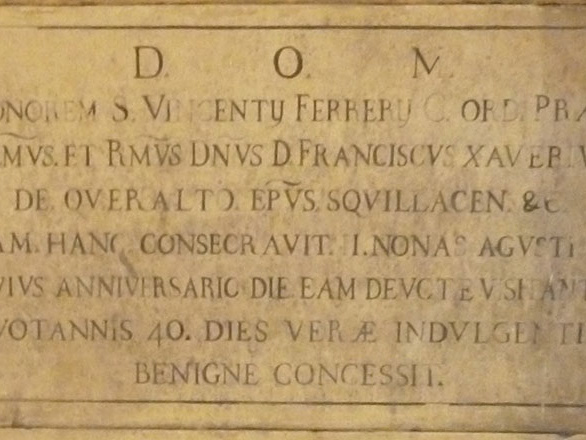 D. O. M.
S. VINCENTIJ FERRERIJ ORD. PRÆ
MVS. ET RMVS DNVS D. FRANCISCVS XAVERIV
DE QVERALTO. EPVS. SQVILLACEN. &C
AM. HANC CONSECRAVIT. NONAS AGVSTI
VIVS ANNIVERSARIO DIE EAM
QVOTANNIS 40. DIES VERÆ INDVLGENTI
BENIGNE CONCESSIT.